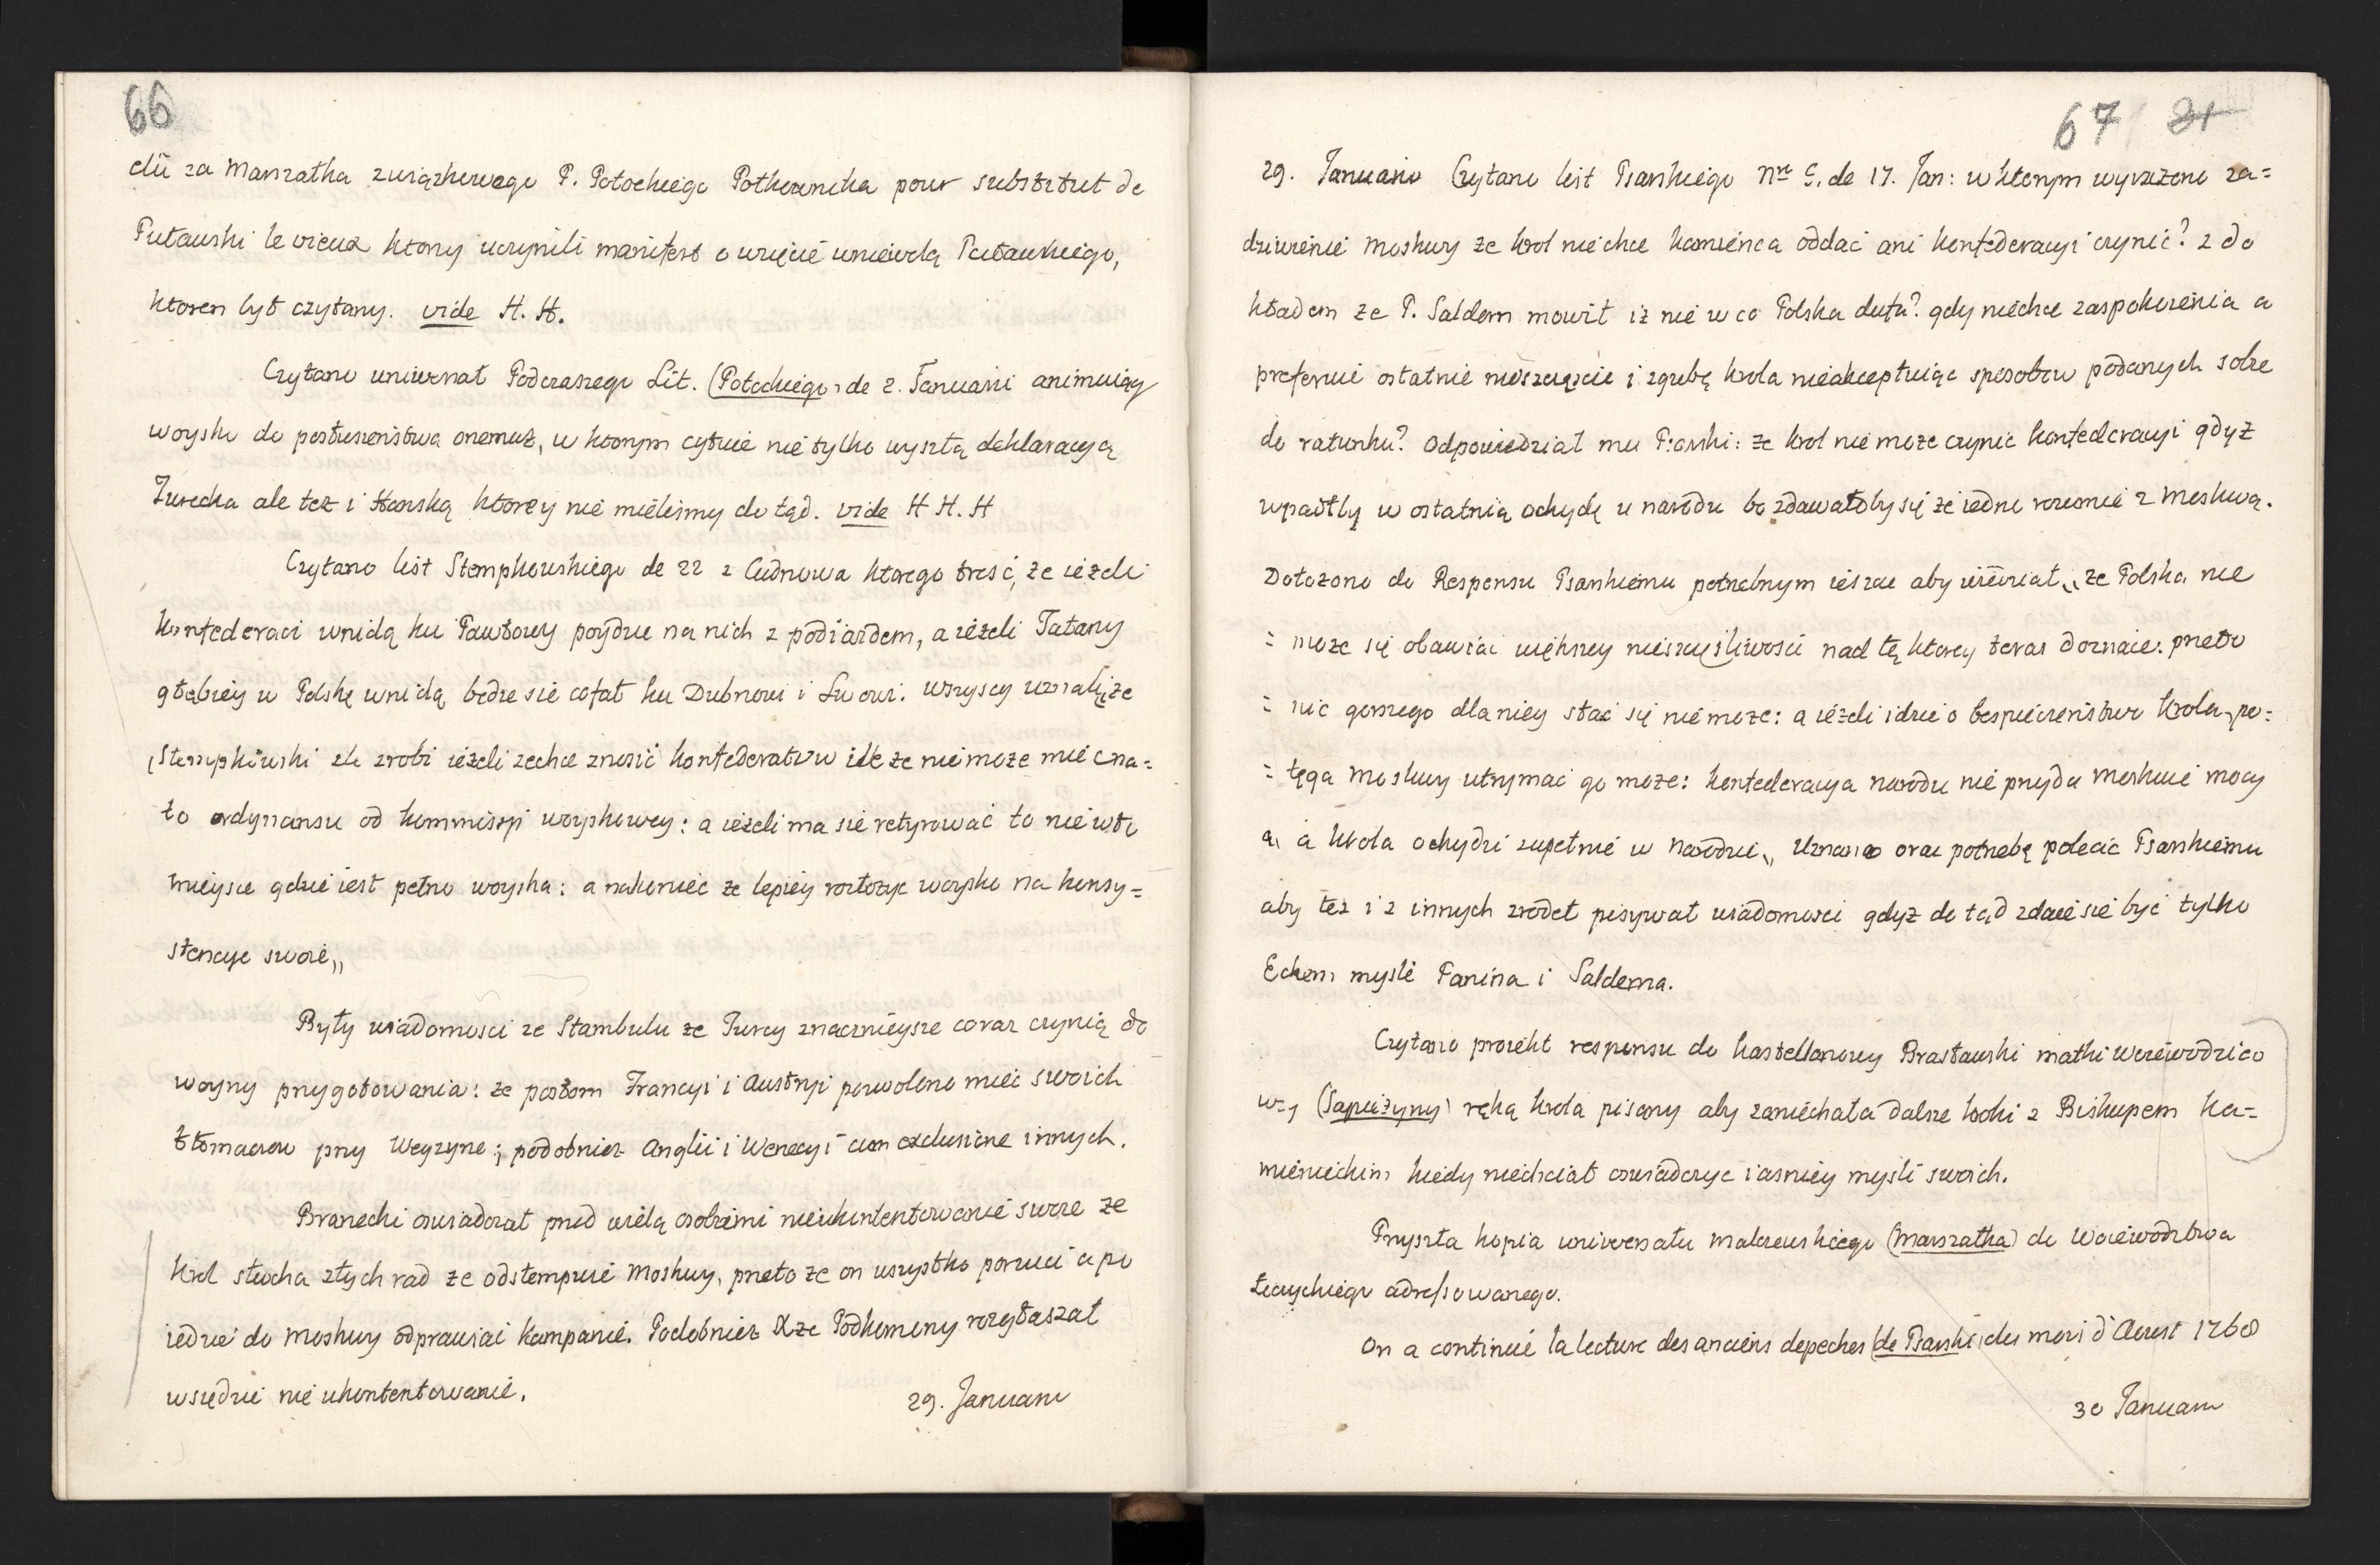 66
clü za Marszałka związkowego P. Potockiego Potkownika pour substitut de
Puławski le vieux ktorzy uczynili manifest o wzięcie uniewolą Puławskiego,
ktoren był czytany. vide H. H.
Czytano uniwersał Podczaszego Lit. (Potockiego) de 2. Januarii animuiący
woysko do posłuszeństwa onemuż, w ktorym cytuie nie tylko wyszłą deklaracyą
Turecka ale też i Hanską ktorey nie mieliśmy do tąd. vide H H. H
Czytano list Stempkowskiego de 22 z Cudnowa ktorego treść, że ieżeli
konfederaci wnidą ku Pawłowy poydzie na nich z podiazdem, a ieżeli Tatarzy
głąbiey w Polskę wnidą będzie się cofał ku Dubnowi i Lwowi. wszyscy uznali że
(Stempkowski źle zrobi ieżeli zechce znosić konfederatow ile że nie może mieć na=
to ordynansu od kommissyi woyskowey: a ieżeli ma się retyrować to nie w to
mieysce gdzie iest pełno woyska: a nakoniec że lepiey rozłożyc woysko na konsy=
stencye swoie„
Były wiadomości ze Stambułu że Turcy znacznieysze coraz czynią do
woyny przygotowania: że posłom Francyi i Austryi pozwolono mieć swoich
tłomaczow przy Wezyrze; podobnież Anglii i Wenecyi cum exclusione innych.
Branecki oswiadczał przed wielą osobami nieukontentowanie swoie że
krol słucha złych rad że odstempuie Moskwy, przeto że on wszystko porzuci a po
iedzie do Moskwy odprawiać kampanie. Podobnież Xże Podkomorzy rozgłaszał
wszędzie nie ukontentowanie.
29. Januarii
67 21
29. Januario Czytano list Psarskiego Nro 5. de 17. Jan: w ktorym wyrażono za=
dziwienie Moskwy że krol nie chce Kamieńca oddać ani konfederacyi czynić? z do
kładem że P. Saldern mowił iż nie w co Polska dufa? gdy niechce zaspokoienia a
preferuie ostatnie nieszczęscie i zgubę krola nieakceptuiąc sposobow podanych sobie
do ratunku? Odpowiedział mu Psarski: że krol nie może czynić konfederacyi gdyż
wpadłby w ostatnią ochydę u narodu bo zdawałoby się że iedno rozumie z Moskwą.
Dołożono do Responsu Psarskiemu potrzebnym ieszcze aby wiedział„ że Polska nie
= może się obawiać większey nieszczęśliwości nad tę ktorey teraz doznaie: przeto
= nic gorszego dla niey stać się nie może: a ieżeli idzie o bespieczeństwo krola, po=
= tęga Moskwy utrzymać go może: konfederacya narodu nie przyda Moskwie mocy
a, a krola ochydzi zupełnie w narodzie„ Uznano oraz potrzebę polecić Psarskiemu
aby też i z innych zrodeł pisywał wiadomości gdyż do tąd zdaie się być tylko
Echem mysli Panina i Salderna.
Czytano proiekt responsu do Kasztellanowy Bracławski matki woiewodzico
w-y (Sapieżyny) ręką krola pisany aby zaniechała dalsze kroki z Biskupem Ka=
mienieckim kiedy niechciał oswiadczyc iasniey mysli swoich.
Przyszła kopia uniwersału Malczewskiego (Marszałka) do Woiewodztwa
Łęczyckiego adressowanego.
On a continué la lecture des anciens depeches (de Psarski) du mois d'Aoust 1768
30 Januarii